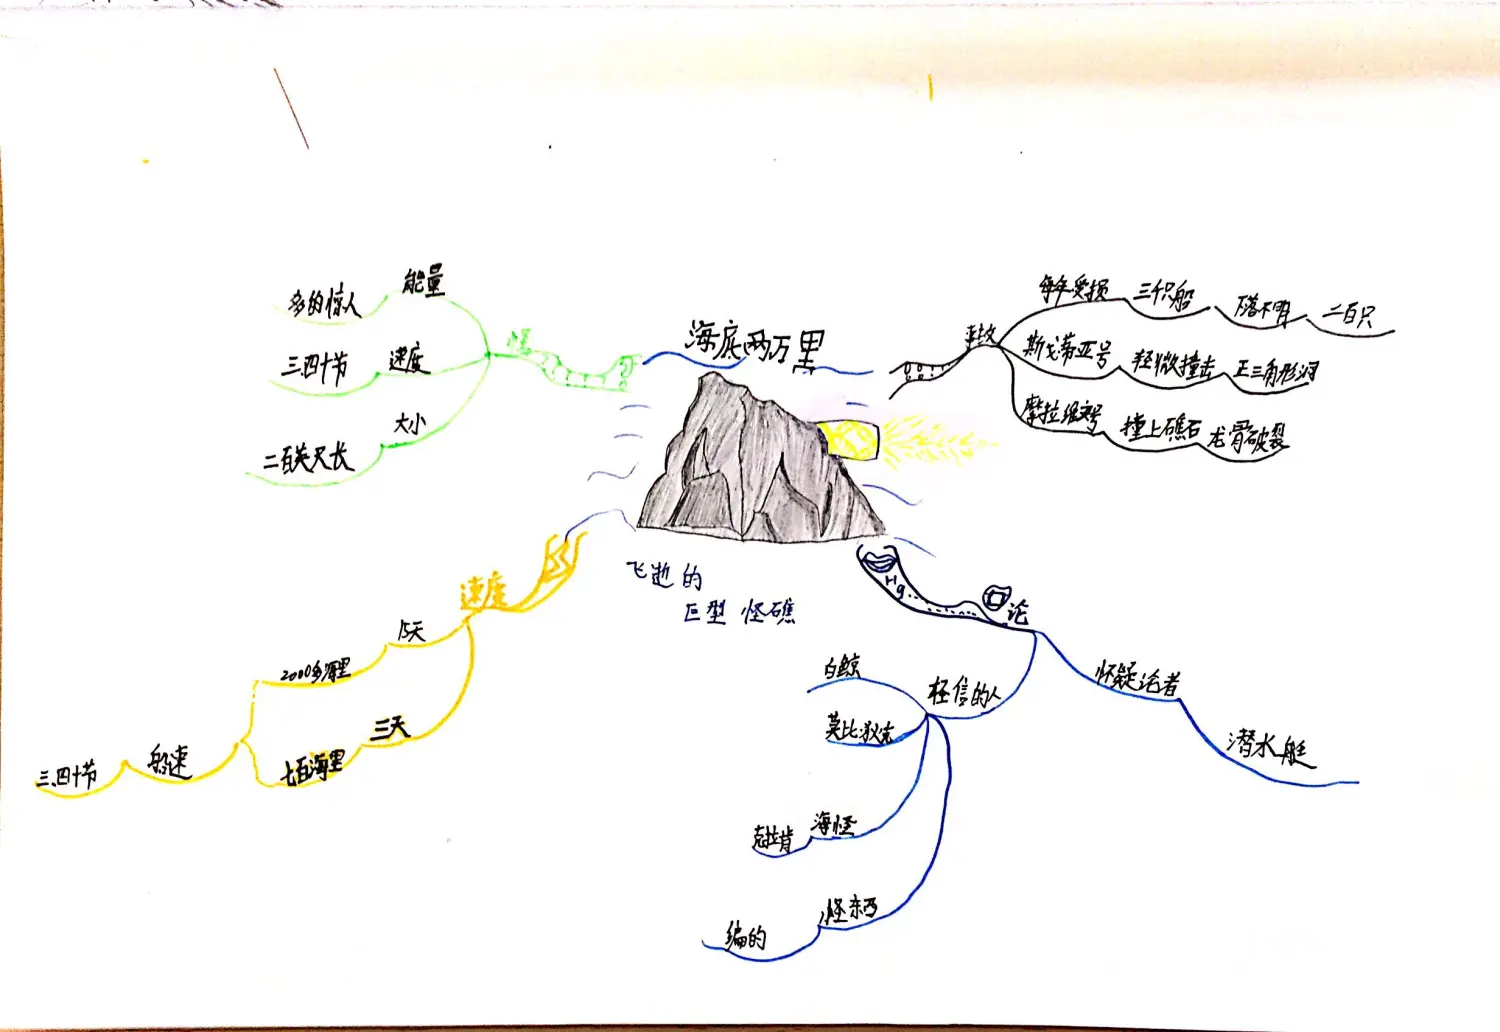 海底两万里
飞逝的
巨型怪礁
能量
多的惊人
速度
三四十节
大小
二百英尺长
事故
每年受损
三千只船
下落不明
二百只
斯戈蒂亚号
轻微撞击
正三角形洞
摩拉维安号
撞上礁石
龙骨破裂
速度
15天
2000多海里
三天
七百海里
船速
三、四十节
论
Hg
轻信的人
白鲸
莫比·狄克
海怪
克拉肯
怪东西
编的
怀疑论者
潜水艇